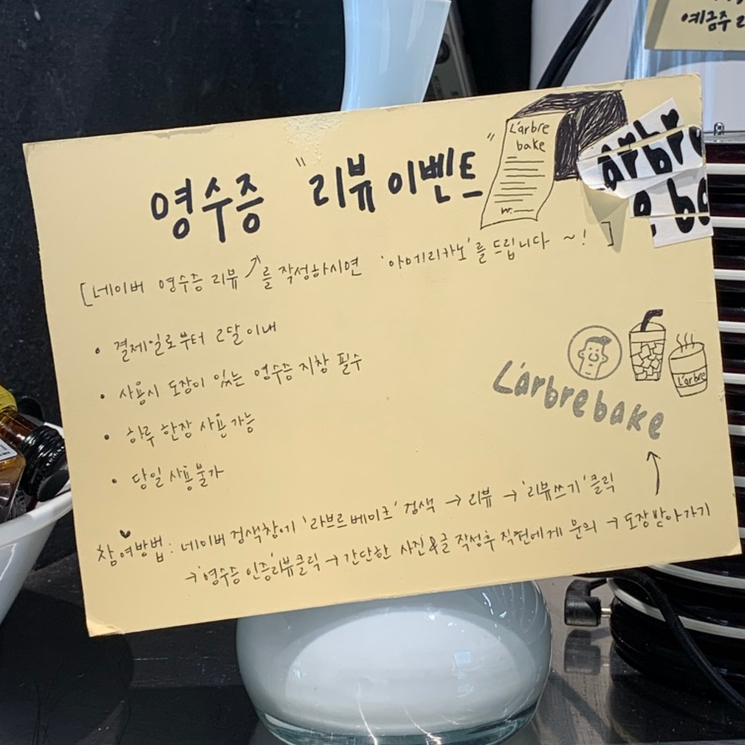 예금주
영수증 "리뷰 이벤트"
L'arbre
bake
[네이버 영수증 리뷰를 작성하시면 '아메리카노'를 드립니다 ~! ]
• 결제일로부터 2달이내
• 사용시 도장이 있는 영수증 지참 필수
• 하루 한장 사용 가능
• 당일 사용불가
L'arbre
L'arbre bake
참여방법 : 네이버 검색창에 '라브르베이크' 검색 → 리뷰 → '리뷰쓰기' 클릭
→ '영수증 인증'리뷰클릭 → 간단한 사진&글 작성후 직원에게 문의 → 도장받아가기